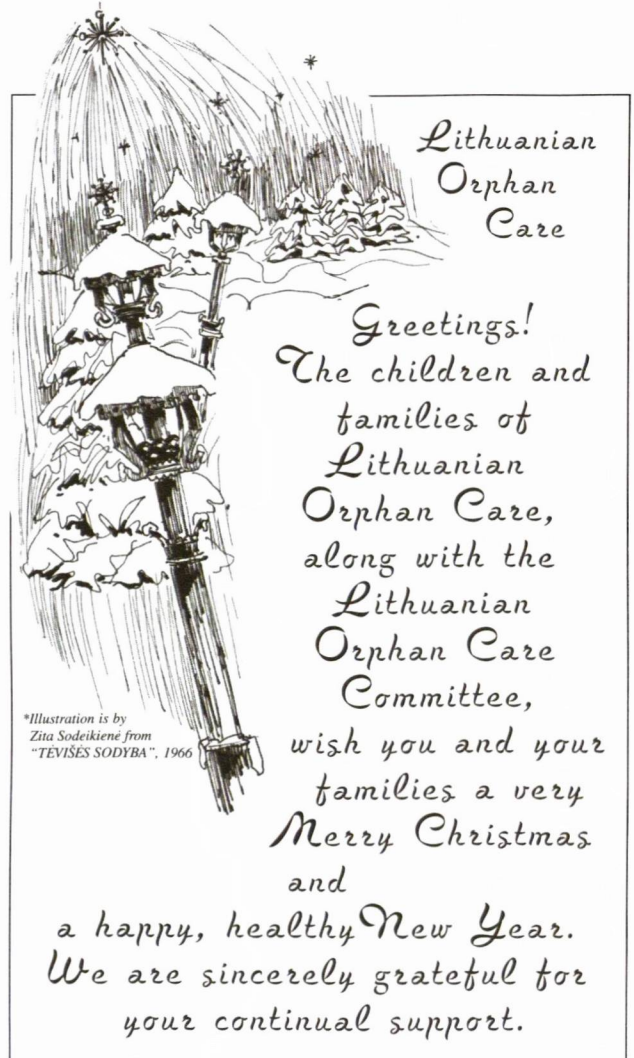 Lithuanian
Orphan
Care
Greetings!
The children and
families of
Lithuanian
Orphan Care,
along with the
Lithuanian
Orphan Care
Committee,
wish you and your
families a very
Merry Christmas
and
a happy, healthy New Year.
We are sincerely grateful for
your continual support.
*Illustration is by
Zita Sodeikienė from
"TĖVIŠĖS SODYBA", 1966